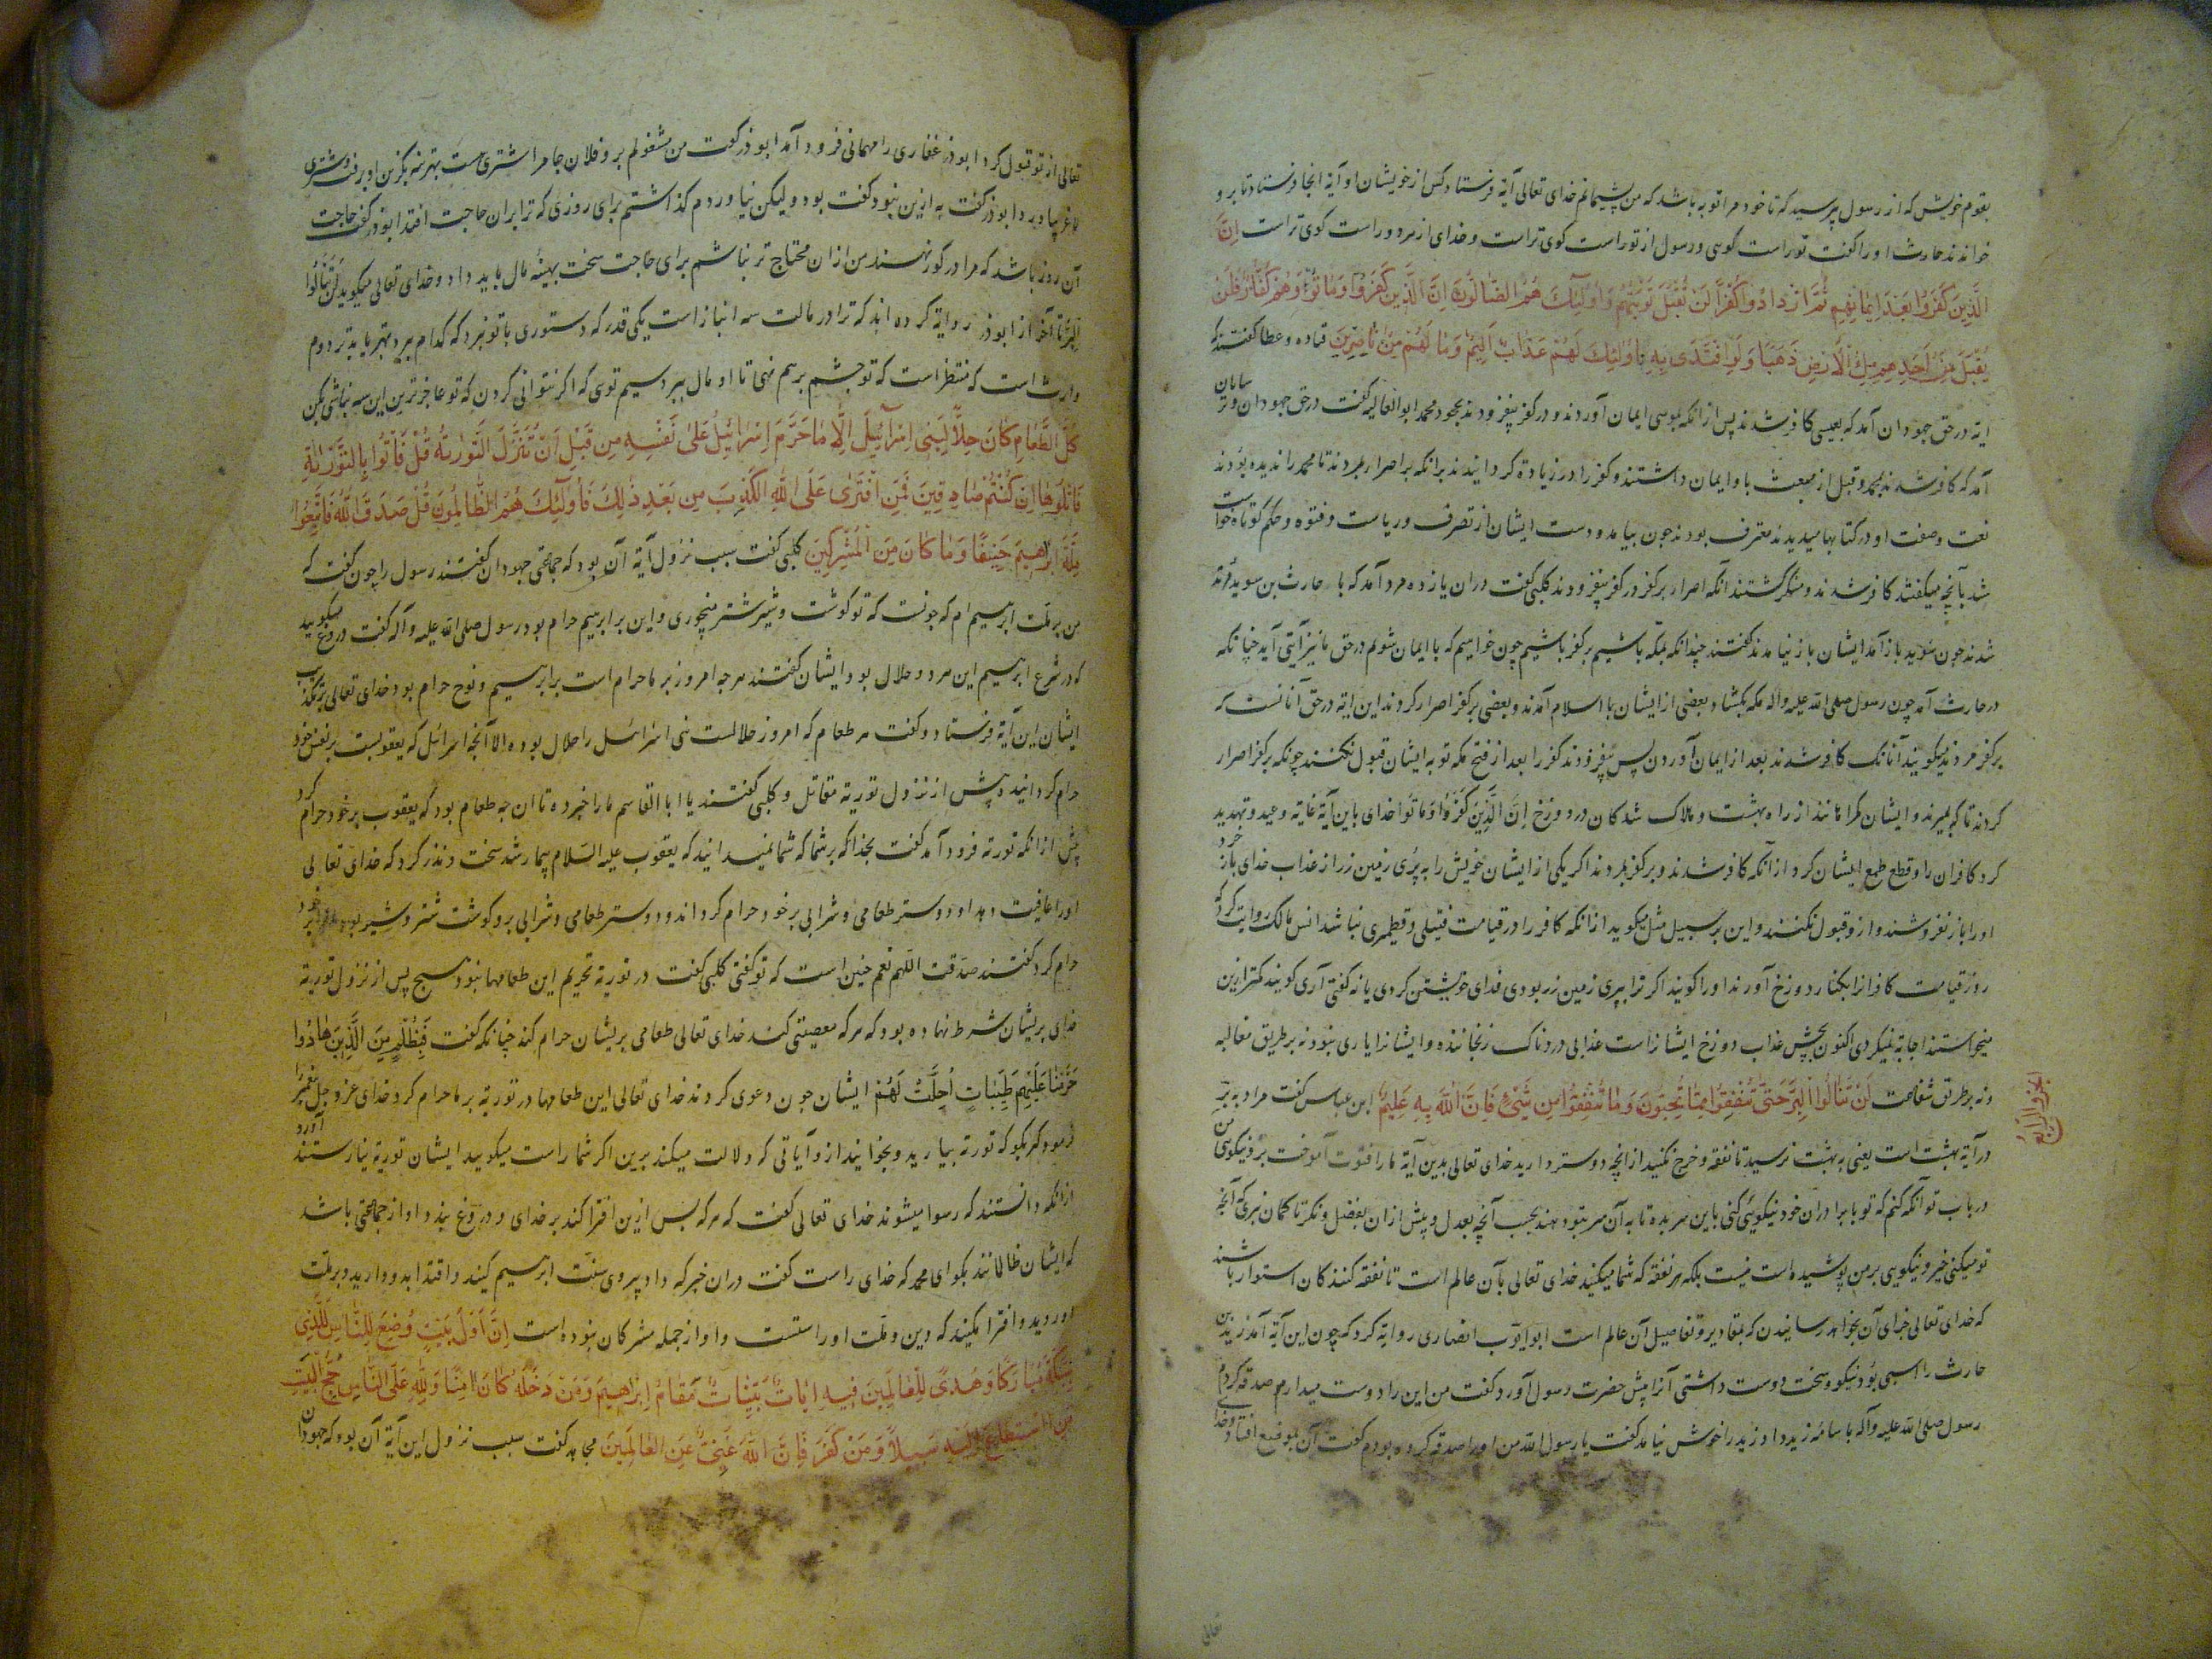 بقوم خویش که از رسول پرسید که تا خود مرا توبه باشد که من پشیمانم خدای تعالی آیة فرستاد کس از خویشان او آیة انجا فرستاد تا برو
خواندند حارث او را گفت تو راست گویی و رسول از تو راست گوی تراست و خدای از هر دو راست گوی تراست اِنَّ
الَّذِینَ کَفَرُوا بَعْدَ اِیمَانِهِم ثُمَّ ازْدَادُوا کُفْرًا لَنْ تُقْبَلَ تَوْبَتُهُم وَاُولٰئِکَ هُمُ الضَّالُّونَ اِنَّ الَّذِینَ کَفَرُوا وَمَاتُوا وَهُمْ کُفَّارٌ فَلَنْ
یُقْبَلَ مِنْ اَحَدِهِمْ مِلْءُ الْاَرْضِ ذَهَبًا وَلَوِ افْتَدٰی بِهِ اُولٰئِکَ لَهُمْ عَذَابٌ اَلِیمٌ وَمَا لَهُمْ مِنْ نَاصِرِینَ قتاده و عطا گفتند که
ایة در حق جهودان آمد که بعیسی کافر شدند پس از انکه بموسی ایمان آوردند و در کفر بیفزودند بجحود محمد ابوالعالیه گفت در حق جهودان و ترسایان
آمد که کافر شدند بمحمد و قبل از مبعث باو ایمان داشتند و کفر را در زیادة کردانیدند برانکه بر اصرار بمردند تا محمد را ندیده بودند
نعت و صفت او در کتابها میدیدند معترف بودند چون بیامد و دست ایشان از تصرف و ریاست و فتوه و حکم کوتاه خواست
شد بآنچه میگفتند کافر شدند و منکر گشتند آنکه اصرار بر کفر در کفر بیفزودند کلبی گفت در ان یازده مرد آمد که با حارث بن سوید مرتد
شدند چون سوید باز آمد ایشان باز نیامدند گفتند چندانکه بمکه باشیم بر کفر باشیم چون خواهیم که با ایمان شویم در حق ما نیز آیتی آید چنانکه
در حارث آمد چون رسول صلی الله علیه و آله مکه بگشاد بعضی از ایشان با اسلام آمدند و بعضی بر کفر اصرار کردند این ایة در حق آنانست که
بر کفر مردند میگویند آنانک کافر شدند بعد از ایمان آوردن پس بیفزودند کفر را بعد از فتح مکه توبه ایشان قبول نکنند چونکه بر کفر اصرار
کردند تا که بمیرند و ایشان گمراهانند از راه بهشت و هلاک شدگان در دوزخ اِنَّ الَّذِینَ کَفَرُوا وَمَاتُوا خدای باین آیة غایة وعید و تهدید
کرد کافران را و قطع طمع ایشان کرد از آنکه کافر شدند و بر کفر بمردند اگر یکی از ایشان خویش را به پری زمین زر از عذاب خدای باز خرد
او را باز نفروشند و ازو قبول نکنند و این بر سبیل مثل میگوید از انکه کافر را در قیامت فتیلی و قطمیری نباشد انس مالک روایت کرد که
روز قیامت کافر را بکنار دوزخ آورند او را گویند اگر ترا پری زمین زر بودی فدای خویشتن کردی یا نه گفتی آری گویند کمتر ازین
میخواستند اجابة نمیکردی اکنون بچش عذاب دوزخ ایشانراست عذابی دردناک رنجاننده و ایشانرا یاری نبود نه بر طریق مغالبه
و نه بر طریق شفاعت لَنْ تَنَالُوا الْبِرَّ حَتَّی تُنْفِقُوا مِمَّا تُحِبُّونَ وَمَا تُنْفِقُوا مِنْ شَیْءٍ فَاِنَّ اللّٰهَ بِهِ عَلِیمٌ ابن عباس گفت مراد به برّ
الجزو الرابع
در آیة بهشت است یعنی به بهشت نرسید تا نفقه و خرج نکنید از انچه دوستر دارید خدای تعالی بدین آیة ما را فتوت آموخت بر و نیکویی من
در باب تو آنکه کنم که تو با برادران خود نیکویی کنی باین سر بده تا به آن سر بتو دهند بحسب آنچه بعدل و پیش از ان بفضل و نکر تا گمان نبری که آنچه
تو میکنی خیر و نیکویی بر من پوشیده است نیست بلکه هر نفقه که شما میکنید خدای تعالی بآن عالم است تا نفقه کنندگان استوار باشند
که خدای تعالی جزای آن بخواهد رسانیدن که بمقادیر و تفاصیل آن عالم است ابو ایوب انصاری روایة کرد که چون این آیة آمد زید بن
حارث را اسبی بود نیکو و سخت دوست داشتی آنرا پیش حضرت رسول آورد گفت من این را دوست میدارم صدقه کردم
رسول صلی الله علیه و آله باسامه زید داد زید را خوش نیامد گفت یا رسول الله من او را صدقه کرده بودم گفت آن بموقع افتاد و خدا
تعالی
تعالی از تو قبول کرد ابوذر غفاری را مهمانی فرود آمد ابوذر گفت من مشغولم برو فلان جا مرا اشتری هست بهترینه بگزین او برفت و شتری
لاغر بیاورد ابوذر گفت به ازین نبود گفت بود و لیکن نیاوردم گذاشتم برای روزی که ترا بران حاجت افتد ابوذر گفت حاجت
آن روز باشد که مرا در گور نهند من از ان محتاج تر نباشم برای حاجت سخت بهینه مال باید داد و خدای تعالی میگوید لَنْ تَنَالُوا
الْبِرَّ تا آخر از ابوذر روایة کرده اند که ترا در مالت سه انبازاست یکی قدر که دستوری با تو نبرد که کدام ببرد بهتر یا بدتر دوم
وارث است که منتظر است که تو چشم بر هم نهی تا او مال ببرد سیم توی که اگر بتوانی کردن که تو عاجزترین این سه نباشی بکن
کُلُّ الطَّعَامِ کَانَ حِلًّا لِبَنِی اِسْرَائِیلَ اِلَّا مَا حَرَّمَ اِسْرَائِیلُ عَلٰی نَفْسِهِ مِن قَبْلِ اَنْ تُنَزَّلَ التَّوْرٰیةُ قُلْ فَاْتُوا بِالتَّوْرٰیةِ
فَاتْلُوهَا اِنْ کُنْتُمْ صَادِقِینَ فَمَنِ افْتَرٰی عَلَی اللّٰهِ الْکَذِبَ مِن بَعْدِ ذٰلِکَ فَاُولٰئِکَ هُمُ الظَّالِمُونَ قُلْ صَدَقَ اللّٰهُ فَاتَّبِعُوا
مِلَّةَ اِبْرٰهِیمَ حَنِیفًا وَمَا کَانَ مِنَ الْمُشْرِکِینَ کلبی گفت سبب نزول آیة آن بود که جماعتی جهودان گفتند رسول را چون گفت که
من بر ملت ابرهیم ام که چونست که تو گوشت و شیر شتر میخوری و این بر ابرهیم حرام بود رسول صلی الله علیه و آله گفت دروغ میگویید
که در شرع ابرهیم این هر دو حلال بود ایشان گفتند هر چه امروز بر ما حرام است بر ابرهیم و نوح حرام بود خدای تعالی بر تکذیب
ایشان این آیة فرستاد و گفت هر طعام که امروز حلالست بنی اسرائیل را حلال بوده الا آنچه اسرائیل که یعقوبست بر نفس خود
حرام کردانید پیش از نزول توریة مقاتل و کلبی گفتند یا ابا القاسم ما را خبر ده تا ان چه طعام بود که یعقوب بر خود حرام کرد
پیش از انکه توریة فرود آمد گفت بخدا که بر شما که شما نمیدانید که یعقوب علیه السلام بیمار شد سخت و نذر کرد که خدای تعالی
او را عافیت دهد او دوستر طعامی و شرابی بر خود حرام کرداند و دوستر طعامی و شرابی برو گوشت شتر و شیر بود بر خود
حرام کرد گفتند صدقت اللهم نعم چنین است که تو گفتی کلبی گفت در توریة تحریم این طعامها نبود هیچ پس از نزول توریة
خدای بر ایشان شرط نهاده بود که هر که معصیتی کند خدای تعالی طعامی بر ایشان حرام کند چنانکه گفت فَبِظُلْمٍ مِنَ الَّذِینَ هَادُوا
حَرَّمْنَا عَلَیْهِمْ طَیِّبَاتٍ اُحِلَّتْ لَهُمْ ایشان چون دعوی کردند خدای تعالی این طعامها در توریة بر ما حرام کرد خدای عز و جل پیغمبر را
فرمود که بگو که توریة بیارید و بخوانید از و آیاتی که دلالت میکند برین اگر شما راست میگویید ایشان توریة نیارستند آورد
از انکه دانستند که رسوا میشوند خدای تعالی گفت که هر که پس ازین افترا کند بر خدای و دروغ بندد او از جماعتی باشد
که ایشان ظالمانند بگو ای محمد که خدای راست گفت در ان خبر که داد پیروی سنّت ابرهیم کنید و اقتدا بدو دارید و بر ملت
او روید و افترا مکنید که دین و ملّت او راستست و او از جمله مشرکان نبوده است اِنَّ اَوَّلَ بَیْتٍ وُضِعَ لِلنَّاسِ لَلَّذِی
بِبَکَّةَ مُبَارَکًا وَهُدًی لِلْعَالَمِینَ فِیهِ اٰیَاتٌ بَیِّنَاتٌ مَقَامُ اِبْرٰهِیمَ وَمَنْ دَخَلَهُ کَانَ اٰمِنًا وَلِلّٰهِ عَلَی النَّاسِ حِجُّ الْبَیْتِ
مَنِ اسْتَطَاعَ اِلَیْهِ سَبِیلًا وَمَنْ کَفَرَ فَاِنَّ اللّٰهَ غَنِیٌّ عَنِ الْعَالَمِینَ مجاهد گفت سبب نزول این آیة آن بود که جهودان